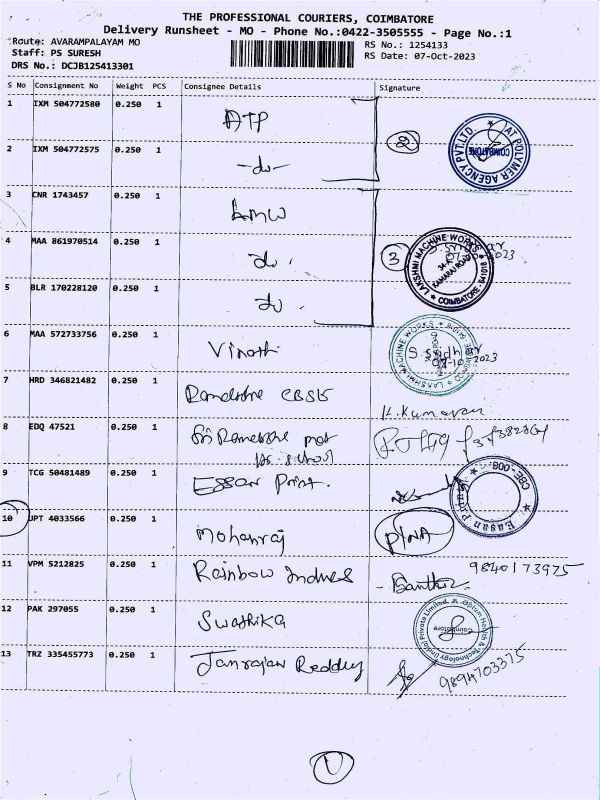 THE PROFESSIONAL COURIERS, COIMBATORE
Delivery Runsheet - MO - Phone No.:0422-3505555 - Page No.:1
Route: AVARAMPALAYAM MO
Staff: PS SURESH
DRS No.: DCJB125413301
RS No.: 1254133
RS Date: 07-Oct-2023
S No Consignment No Weight PCS Consignee Details Signature
1 IXM 504772580 0.250 1 ATP
2 IXM 504772575 0.250 1 -do- 2
AT POLYMER AGENCY PVT.LTD. COIMBATORE
3 CNR 1743457 0.250 1 LMW
4 MAA 861970514 0.250 1 do. 3
LAKSHMI MACHINE WORKS
KAMARAJ ROAD
COIMBATORE
5 BLR 170228120 0.250 1 do.
6 MAA 572733756 0.250 1 Vinoth S. Sridhar
07-10-2023
LAKSHMI MACHINE WORKS
7 HRD 346821482 0.250 1 CBSE K. Kumaran
8 EDQ 47521 0.250 1
9 TCG 50481489 0.250 1 Essar Print.
CBE-006.
10 JPT 4033566 0.250 1 Mohanraj
11 VPM 5212825 0.250 1 Rainbow 9840173975
12 PAK 297055 0.250 1 Swathika
Technology (India) Private Limited
Coimbatore
13 TRZ 335455773 0.250 1 Reddy 9894703375